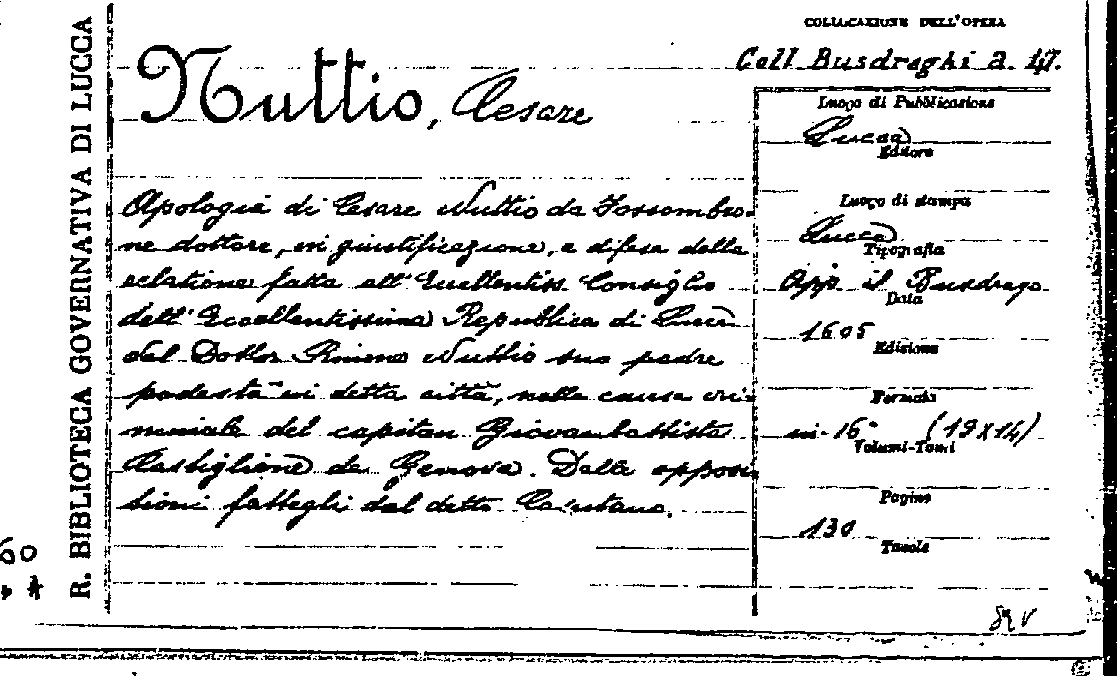 R. BIBLIOTECA GOVERNATIVA DI LUCCA
COLLOCAZIONE DELL'OPERA
Coll. Busdraghi a. 47.
Nuttio, Cesare
Apologia di Cesare Nuttio da Fossombro-
ne dottore, in giustificazione, e difesa della
relatione fatta all' Eccellentiss Consiglio
dell' Eccellentissima Republica di Lucca
dal Dottor Nuttio suo padre
podestà in detta città, nella causa cri-
minale del capitan Giovambattista
Castiglione da Genova. Dalle opposi
tioni fattegli dal detto
Luogo di Pubblicazione
Lucca
Editore
Luogo di stampa
Lucca
Tipografia
App. il Busdrago
Data
1605
Edizione
Formato
in-16° (19x14)
Volumi-Tomi
Pagine
130
Tavole
60